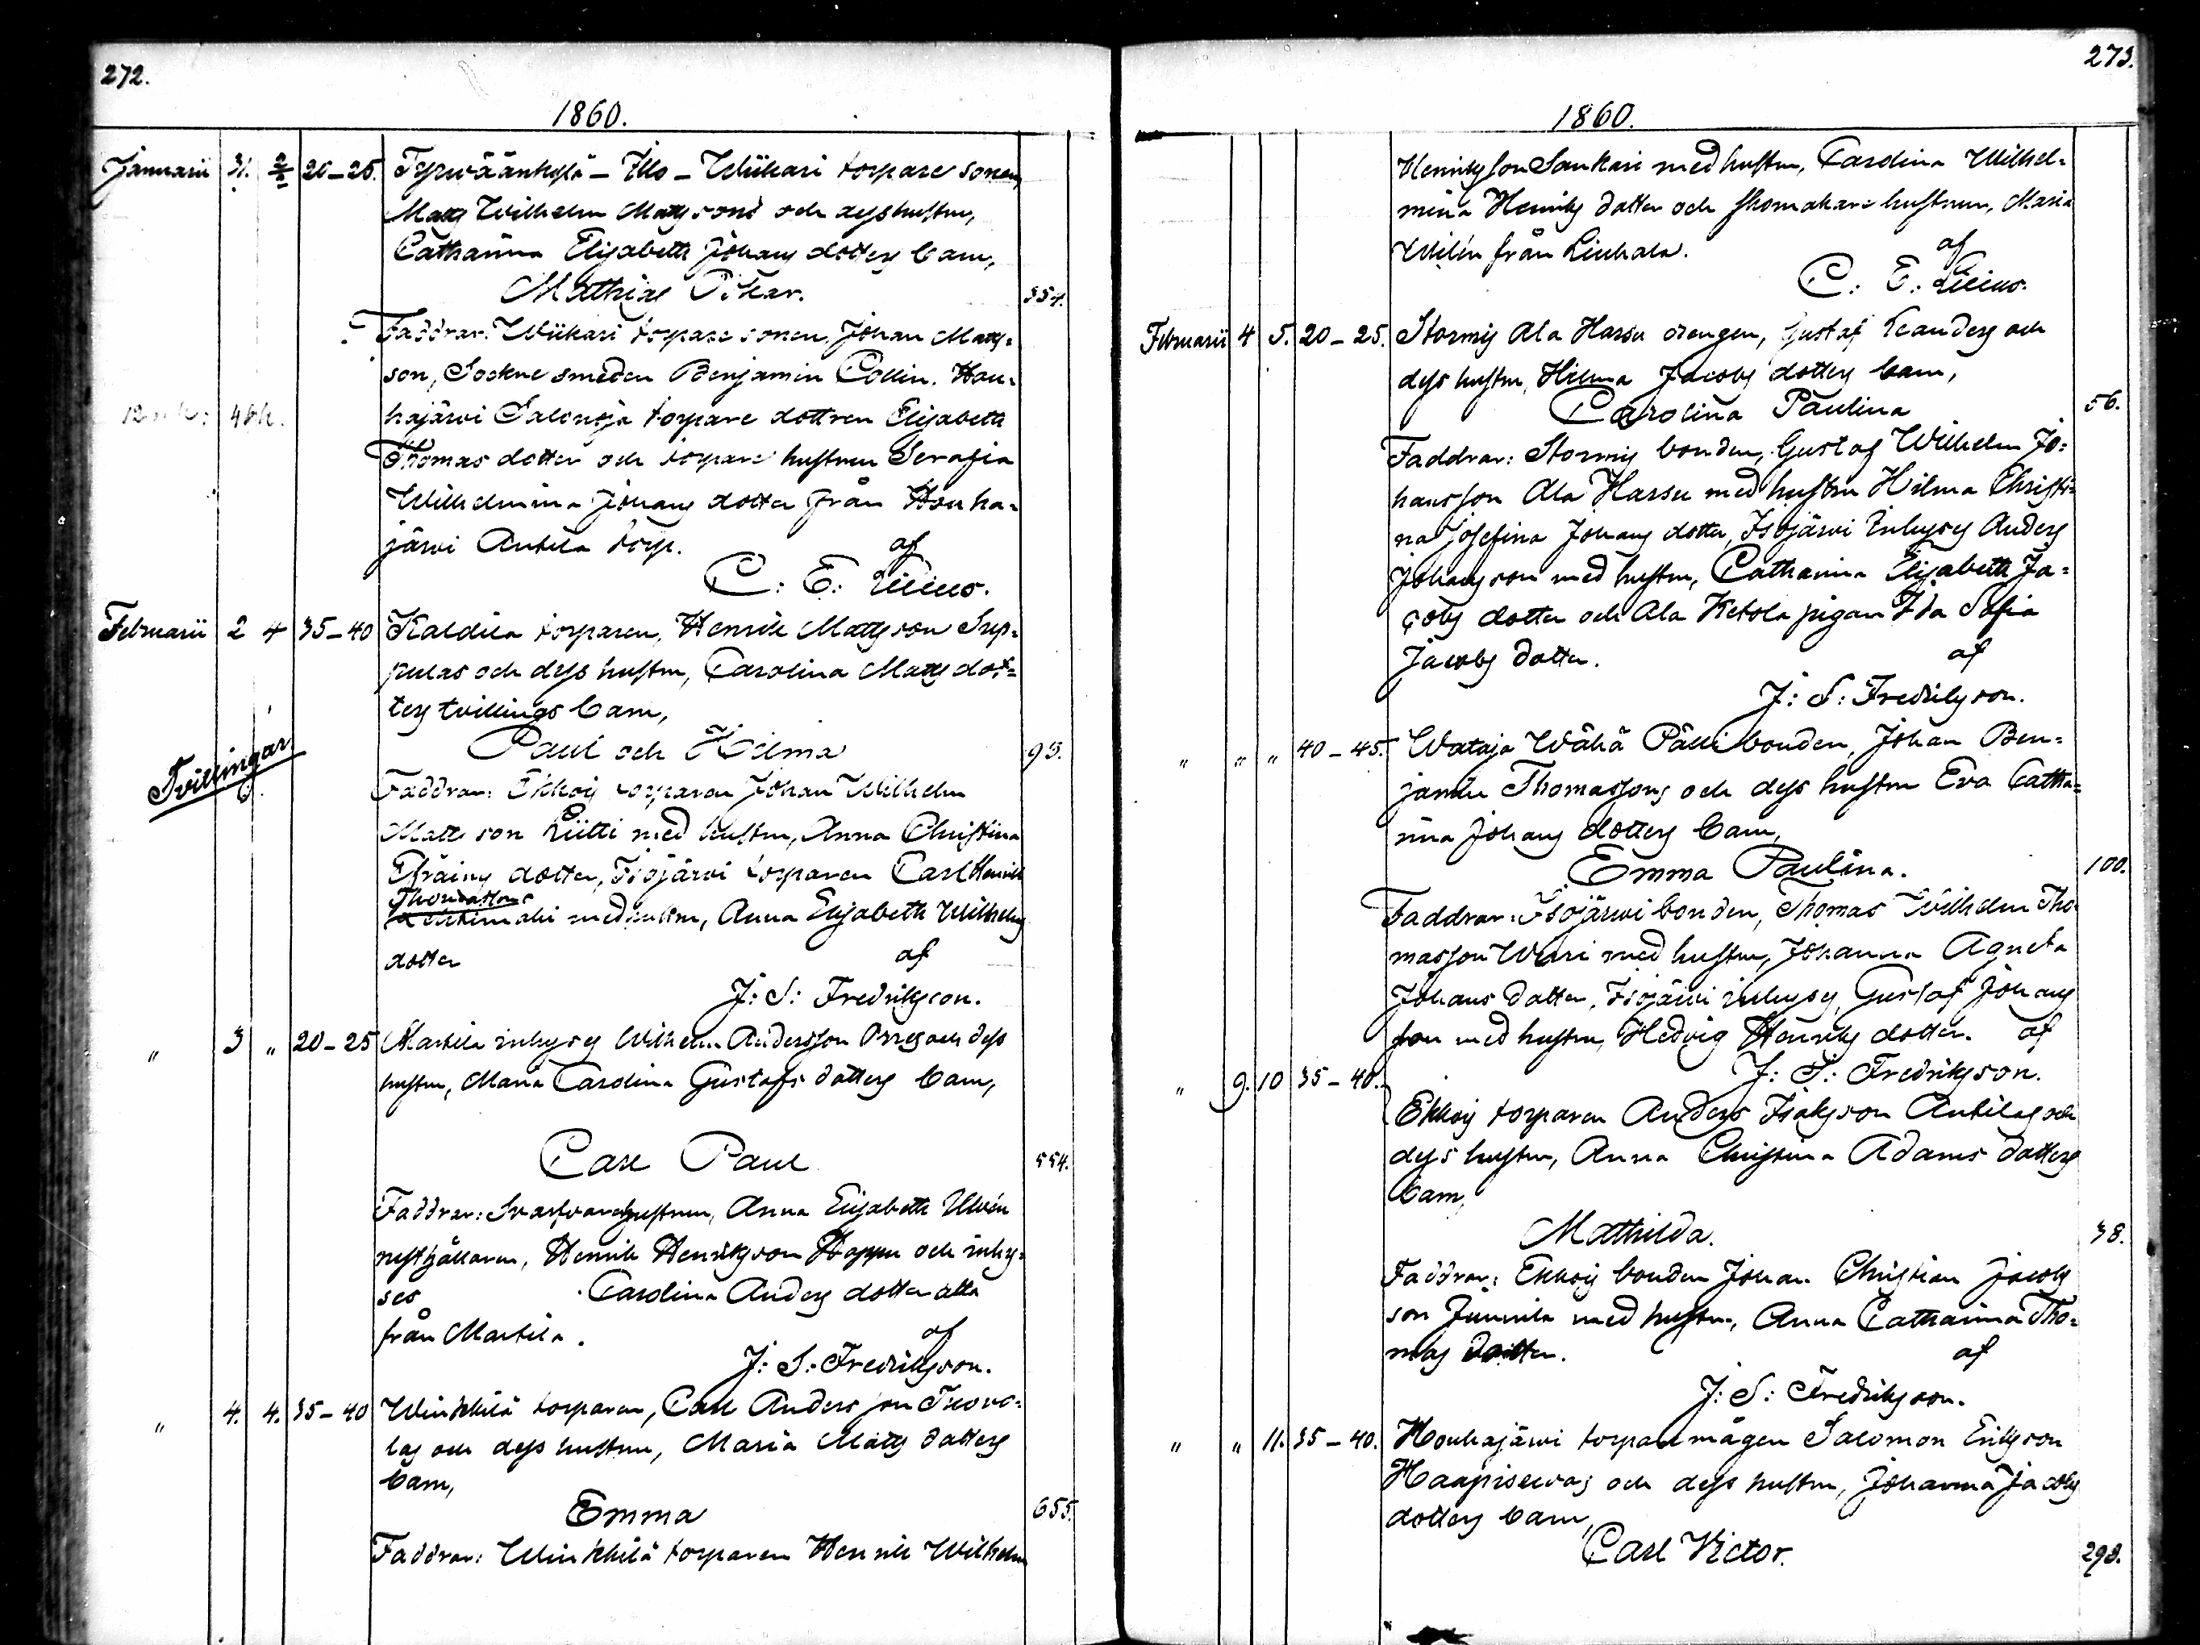 272.
1860.
Januarii 31. 2/2 20–25. Tyrväänkylä – Illo – Wiikari torpare sonen,
Matts Wilhelm Mattssons och dess hustru,
Catharina Elisabeth Johans dotters barn,
Mathias Oskar. 554.
Faddrar: Wiikari torpare sonen, Johan Matts-
son, Sockne smeden Benjamin Collin. Hou-
hajärvi Salonoja torpare dottren Elisabeth
Thomas dotter och torpare hustrun Serafia
Wilhelmina Johans dotter från Houha-
järvi Antila torp. af
C: E: Lilius.
Februarii 2 4 35–40 Kaldila torparen, Henrik Mattsson Sep-
pälas och dess hustru, Carolina Matts dot-
ters tvillings barn,
Tvillingar
Paul och Hilma 93.
Faddrar: Ekkois torparen Johan Wilhelm
Matts son Liitti med hustru, Anna Christina
Efraims dotter, Isojärvi torparen Carl Henrik
Thomasson
med hustru, Anna Elisabeth Wilhelms
dotter af
J: S: Fredriksson.
" 3 " 20–25 Martila inhyses Wilhelm Andersson och dess
hustru, Maria Carolina Gustafs dotters barn,
Carl Paul 554.
Faddrar: Svarfvarehustrun, Anna Elisabeth Ulvén
rusthållaren, Henrik Henriksson Hoppu och inhy-
ses Carolina Anders dotter alla
från Martila. af
J: S: Fredriksson.
" 4. 4. 35–40 Winkkilä torparen, Carl Andersson Tuovo-
las och dess hustru, Maria Matts dotters
barn,
Emma 655.
Faddrar: Winkkilä torparen Henrik Wilhelm
273.
1860.
Henriksson Sankari med hustru, Carolina Wilhel-
mina Henriks dotter och skomakare hustrun, Maria
Wilén från Liuhala. af
C: E: Lilius.
Februarii 4 5. 20–25. Stormis Ala Hassu drengen, Gustaf Leanders och
dess hustru, Hilma Jacobs dotters barn,
Carolina Paulina 56.
Faddrar: Stormis bonden, Gustaf Wilhelm Jo-
hansson Ala Hassu med hustru Hilma Christi-
na Josefina Johans dotter, Isojärvi inhyses Anders
Johansson med hustru, Catharina Elisabeth Ja-
cobs dotter och Ala Ketola pigan Ida Sofia
Jacobs dotter. af
J: S: Fredriksson.
" " " 40–45. Wataja Wähä Pälli bonden, Johan Ben-
jamin Thomassons och dess hustru Eva Catha-
rina Johans dotters barn,
Emma Paulina. 100.
Faddrar: Isojärvi bonden, Thomas Wilhelm Tho-
masson Wari med hustru, Johanna Agneta
Johans dotter, Isojärvi inhyses, Gustaf Johans
son med hustru, Hedvig Henriks dotter. af
J: S: Fredriksson.
" 9. 10 35–40. Ekkois torparen Anders Isaksson Antilas och
dess hustru, Anna Christina Adams dotters
barn,
Mathilda. 38.
Faddrar: Ekkois bonden Johan Christian Jacobs
son Junnila med hustru, Anna Catharina Tho-
mas dotter. af
J: S: Fredriksson.
" " 11. 35–40. Houhajärvi torpare mågen Salomon Eriksson
Haapisevas och dess hustru, Johanna Jacobs
dotters barn,
Carl Victor. 298.